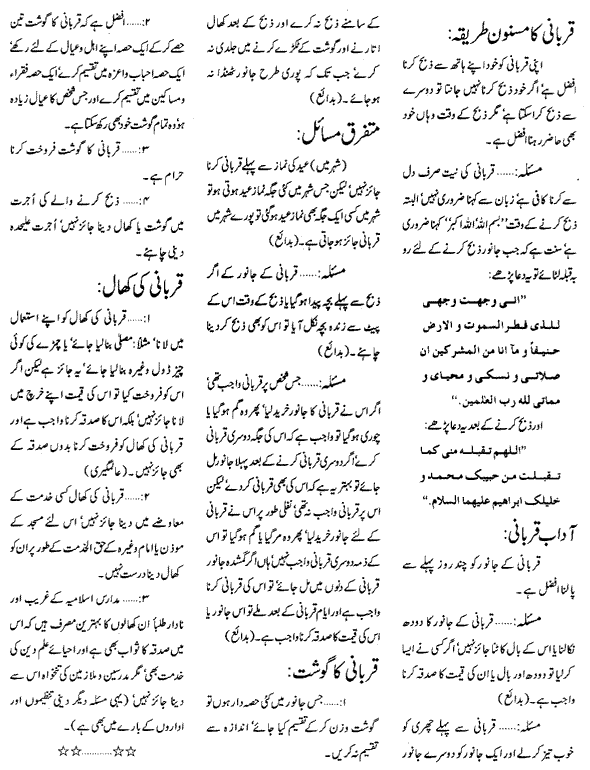 قربانی کا مسنون طریقہ:
اپنی قربانی کو خود اپنے ہاتھ سے ذبح کرنا
افضل ہے‘ اگر خود ذبح کرنا نہیں جانتا تو دوسرے
سے ذبح کراسکتا ہے‘ مگر ذبح کے وقت وہاں خود
بھی حاضر رہنا افضل ہے۔
مسئلہ:...... قربانی کی نیت صرف دل
سے کرنا کافی ہے‘ زبان سے کہنا ضروری نہیں‘ البتہ
ذبح کرنے کے وقت ”بسم اللہ اللہ اکبر“ کہنا ضروری
ہے‘ سنت ہے کہ جب جانور ذبح کرنے کے لئے رو
بہ قبلہ لٹائے تو یہ دعا پڑھے:
”انی وجهت وجهی
للذی فطر السموت و الارض
حنیفاً و مآ انا من المشرکین ان
صلاتی و نسکی و محیای و
مماتی لله رب العلمین.“
اور ذبح کرنے کے بعد یہ دعا پڑھے:
”اللهم تقبله منی کما
تقبلت من حبیبک محمد و
خلیلک ابراهیم علیهما السلام.“
آداب قربانی:
قربانی کے جانور کو چند روز پہلے سے
پالنا افضل ہے۔
مسئلہ:...... قربانی کے جانور کا دودھ
نکالنا یا اس کے بال کاٹنا جائز نہیں‘ اگر کسی نے ایسا
کرلیا تو دودھ اور بال یا ان کی قیمت کا صدقہ کرنا
واجب ہے۔ (بدائع)
مسئلہ:...... قربانی سے پہلے چھری کو
خوب تیز کرلے اور ایک جانور کو دوسرے جانور
کے سامنے ذبح نہ کرے اور ذبح کے بعد کھال
اتارنے اور گوشت کے ٹکڑے کرنے میں جلدی نہ
کرے‘ جب تک کہ پوری طرح جانور ٹھنڈا نہ
ہوجائے۔ (بدائع)
متفرق مسائل:
(شہر میں) عید کی نماز سے پہلے قربانی کرنا
جائز نہیں‘ لیکن جس شہر میں کئی جگہ نماز عید ہوتی ہو تو
شہر میں کسی ایک جگہ بھی نماز عید ہوگئی تو پورے شہر میں
قربانی جائز ہوجاتی ہے۔ (بدائع)
مسئلہ:...... قربانی کے جانور کے اگر
ذبح سے پہلے بچہ پیدا ہوگیا یا ذبح کے وقت اس کے
پیٹ سے زندہ بچہ نکل آیا تو اس کو بھی ذبح کردینا
چاہئے۔ (بدائع)
مسئلہ:...... جس شخص پر قربانی واجب تھی‘
اگر اس نے قربانی کا جانور خرید لیا‘ پھر وہ گم ہوگیا یا
چوری ہوگیا تو واجب ہے کہ اس کی جگہ دوسری قربانی
کرے‘ اگر دوسری قربانی کرنے کے بعد پہلا جانور مل
جائے تو بہتر یہ ہے کہ اس کی بھی قربانی کردے‘ لیکن
اس پر قربانی واجب نہ تھی‘ نفلی طور پر اس نے قربانی
کے لئے جانور خرید لیا‘ پھر وہ مر گیا یا گم ہوگیا تو اس
کے ذمہ دوسری قربانی واجب نہیں‘ ہاں اگر گمشدہ جانور
قربانی کے دنوں میں مل جائے‘ تو اس کی قربانی کرنا
واجب ہے اور ایام قربانی کے بعد ملے تو اس جانور یا
اس کی قیمت کا صدقہ کرنا واجب ہے۔ (بدائع)
قربانی کا گوشت:
۱:...... جس جانور میں کئی حصہ دار ہوں تو
گوشت وزن کرکے تقسیم کیا جائے‘ اندازہ سے
تقسیم نہ کریں۔
۲:...... افضل ہے کہ قربانی کا گوشت تین
حصے کرکے ایک حصہ اپنے اہل و عیال کے لئے رکھے‘
ایک حصہ احباب و اعزہ میں تقسیم کرے‘ ایک حصہ فقراء
و مساکین میں تقسیم کرے اور جس شخص کا عیال زیادہ
ہو‘ وہ تمام گوشت خود بھی رکھ سکتا ہے۔
۳:...... قربانی کا گوشت فروخت کرنا
حرام ہے۔
۴:...... ذبح کرنے والے کی اُجرت
میں گوشت یا کھال دینا جائز نہیں‘ اُجرت علیحدہ
دینی چاہئے۔
قربانی کی کھال:
۱:...... قربانی کی کھال کو اپنے استعمال
میں لانا‘ مثلاً: مصلّٰی بنالیا جائے‘ یا چمڑے کی کوئی
چیز ڈول وغیرہ بنالیا جائے‘ یہ جائز ہے‘ لیکن اگر
اس کو فروخت کیا تو اس کی قیمت اپنے خرچ میں
لانا جائز نہیں‘ بلکہ اس کا صدقہ کرنا واجب ہے اور
قربانی کی کھال کو فروخت کرنا بدوں صدقہ کے
بھی جائز نہیں۔ (عالمگیری)
۲:...... قربانی کی کھال کسی خدمت کے
معاوضے میں دینا جائز نہیں‘ اس لئے مسجد کے
موذن یا امام وغیرہ کے حق الخدمت کے طور پر ان کو
کھال دینا درست نہیں۔
۳:...... مدارس اسلامیہ کے غریب اور
نادار طلبأ ان کھالوں کا بہترین مصرف ہیں کہ اس
میں صدقہ کا ثواب بھی ہے اور احیائے علم دین کی
خدمت بھی‘ مگر مدرسین و ملازمین کی تنخواہ اس سے
دینا جائز نہیں‘ (یہی مسئلہ دیگر دینی تنظیموں اور
اداروں کے بارے میں بھی ہے)۔
☆☆............☆☆